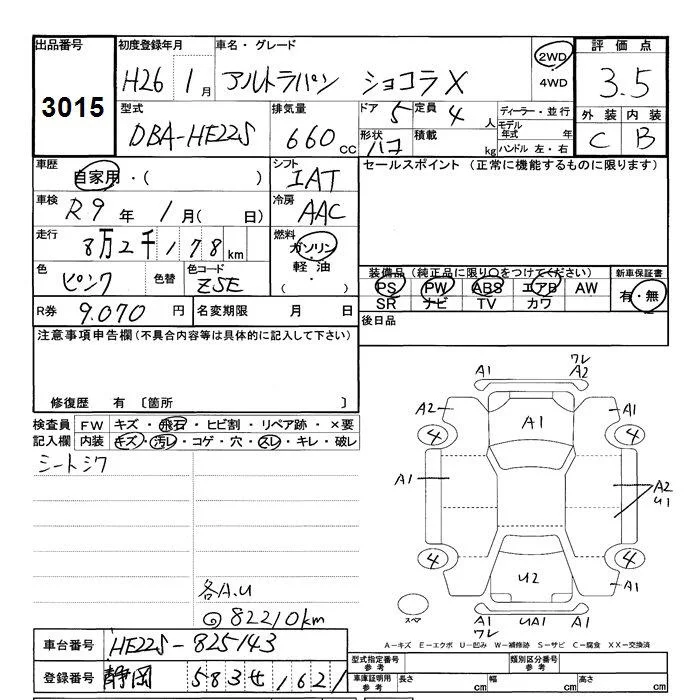 出品番号 初度登録年月 車名・グレード 評価点
3015 H26 1月 アルトラパン ショコラX 2WD 3.5
4WD
外装 内装
C B
型式 排気量 ドア 定員 ディーラー・並行
DBA-HE22S 660cc 5 4人 モデル年式 年
形状 ハコ 積載 kg ハンドル 左・右
車歴 シフト セールスポイント (正常に機能するものに限ります)
自家用・( ) IAT
車検 冷房
R9年 1月( 日) AAC
走行 燃料
8万2千178km ガソリン
色 色替 色コード 軽油・
ピンク ZSE ( )
装備品 (純正品に限り○をつけてください) 新車保証書
PS PW ABS エアB AW 有・無
SR ナビ TV カワ
R券 9.070円 名変期限 月 日 後日品
注意事項申告欄(不具合内容等は具体的に記入して下さい)
修復歴 有 〔箇所 〕
検査員 FW キズ・飛石・ヒビ割・リペア跡・×要
記入欄 内装 キズ・汚レ・コゲ・穴・スレ・キレ・破レ
シートシワ
各A.U
@82210km
A1 ワレ A2
A2 A1 A1
4 4
A1 A2
U1
4 4
U2 A1
A1 UA1 A1
ワレ
スペア
A-キズ E-エクボ U-凹み W-補修跡 S-サビ C-腐食 XX-交換済
車台番号 HE22S-825143
型式指定番号 参考 類別区分番号 参考
登録番号 静岡 583 せ 1621
車庫証明用 参考 長さ cm 幅 cm 高さ cm